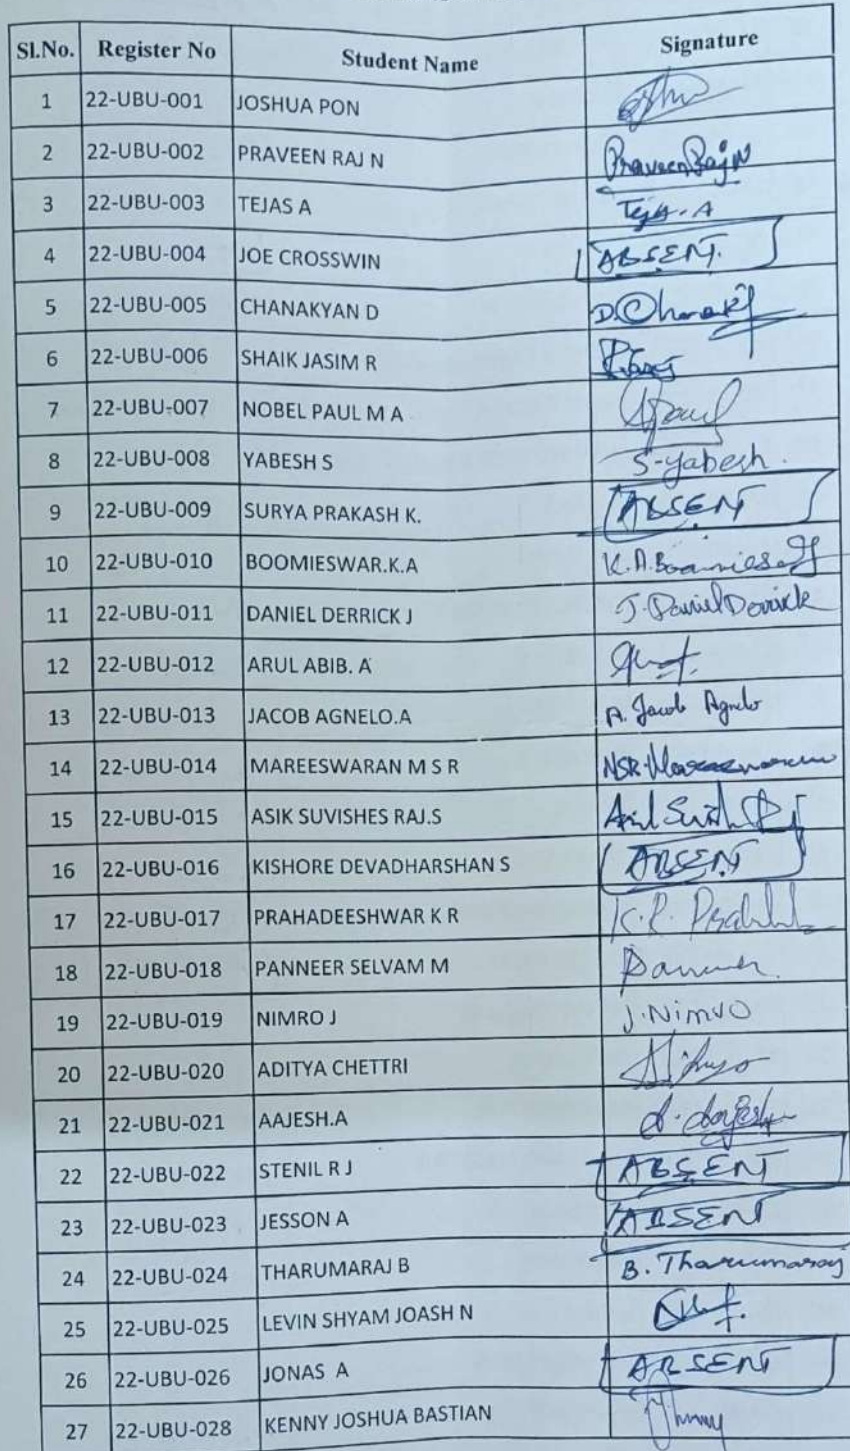 Sl.No. Register No Student Name Signature
1 22-UBU-001 JOSHUA PON
2 22-UBU-002 PRAVEEN RAJ N Praveen Raj N
3 22-UBU-003 TEJAS A Tejas. A
4 22-UBU-004 JOE CROSSWIN ABSENT.
5 22-UBU-005 CHANAKYAN D
6 22-UBU-006 SHAIK JASIM R
7 22-UBU-007 NOBEL PAUL M A
8 22-UBU-008 YABESH S S-yabesh.
9 22-UBU-009 SURYA PRAKASH K. ABSENT
10 22-UBU-010 BOOMIESWAR.K.A
11 22-UBU-011 DANIEL DERRICK J J. Daniel Derrick
12 22-UBU-012 ARUL ABIB. A
13 22-UBU-013 JACOB AGNELO.A A. Jacob Agnelo
14 22-UBU-014 MAREESWARAN M S R
15 22-UBU-015 ASIK SUVISHES RAJ.S
16 22-UBU-016 KISHORE DEVADHARSHAN S ABSENT
17 22-UBU-017 PRAHADEESHWAR K R
18 22-UBU-018 PANNEER SELVAM M
19 22-UBU-019 NIMRO J J.Nimro
20 22-UBU-020 ADITYA CHETTRI
21 22-UBU-021 AAJESH.A
22 22-UBU-022 STENIL R J ABSENT
23 22-UBU-023 JESSON A ABSENT
24 22-UBU-024 THARUMARAJ B B. Tharumaraj
25 22-UBU-025 LEVIN SHYAM JOASH N
26 22-UBU-026 JONAS A ABSENT
27 22-UBU-028 KENNY JOSHUA BASTIAN